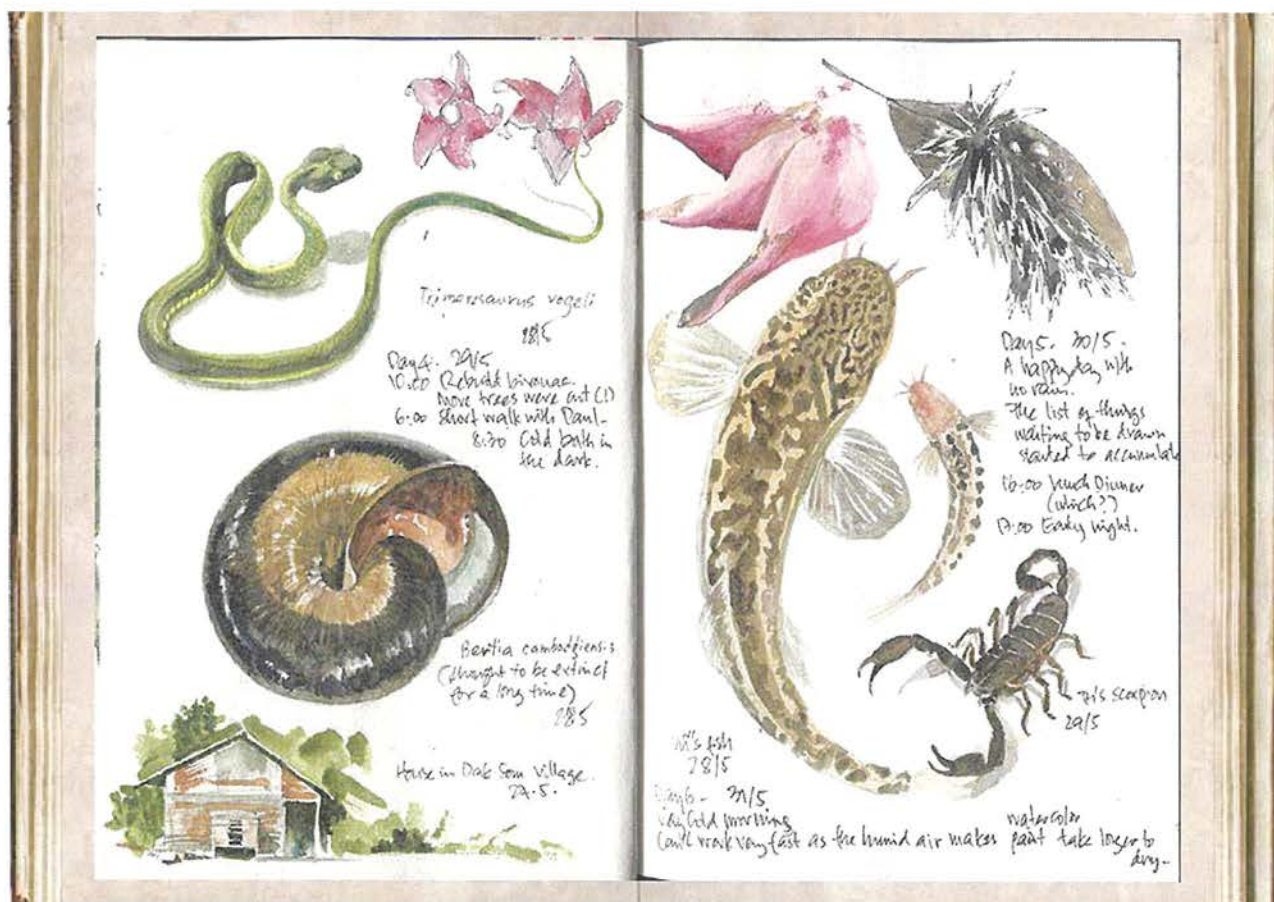 Trimerosaurus vogeli
28/5
Day 4. 29/5
10.00 Rebuild bivouac.
More trees were cut (!)
6.00 Short walk with Paul-
8.30 Cold bath in
the dark.
Bertia cambodgiensis
(thought to be extinct
for a long time)
28/5
House in Dak Som village.
27.5.
Day 5. 30/5.
A happy day with
no rain.
The list of things
waiting to be drawn
started to accumulate
16.00 Lunch Dinner
(which?)
17.00 Early night.
scorpion
29/5
fish
28/5
Day 6- 31/5
Very cold morning
watercolor
Can't work very fast as the humid air makes paint take longer to
dry-